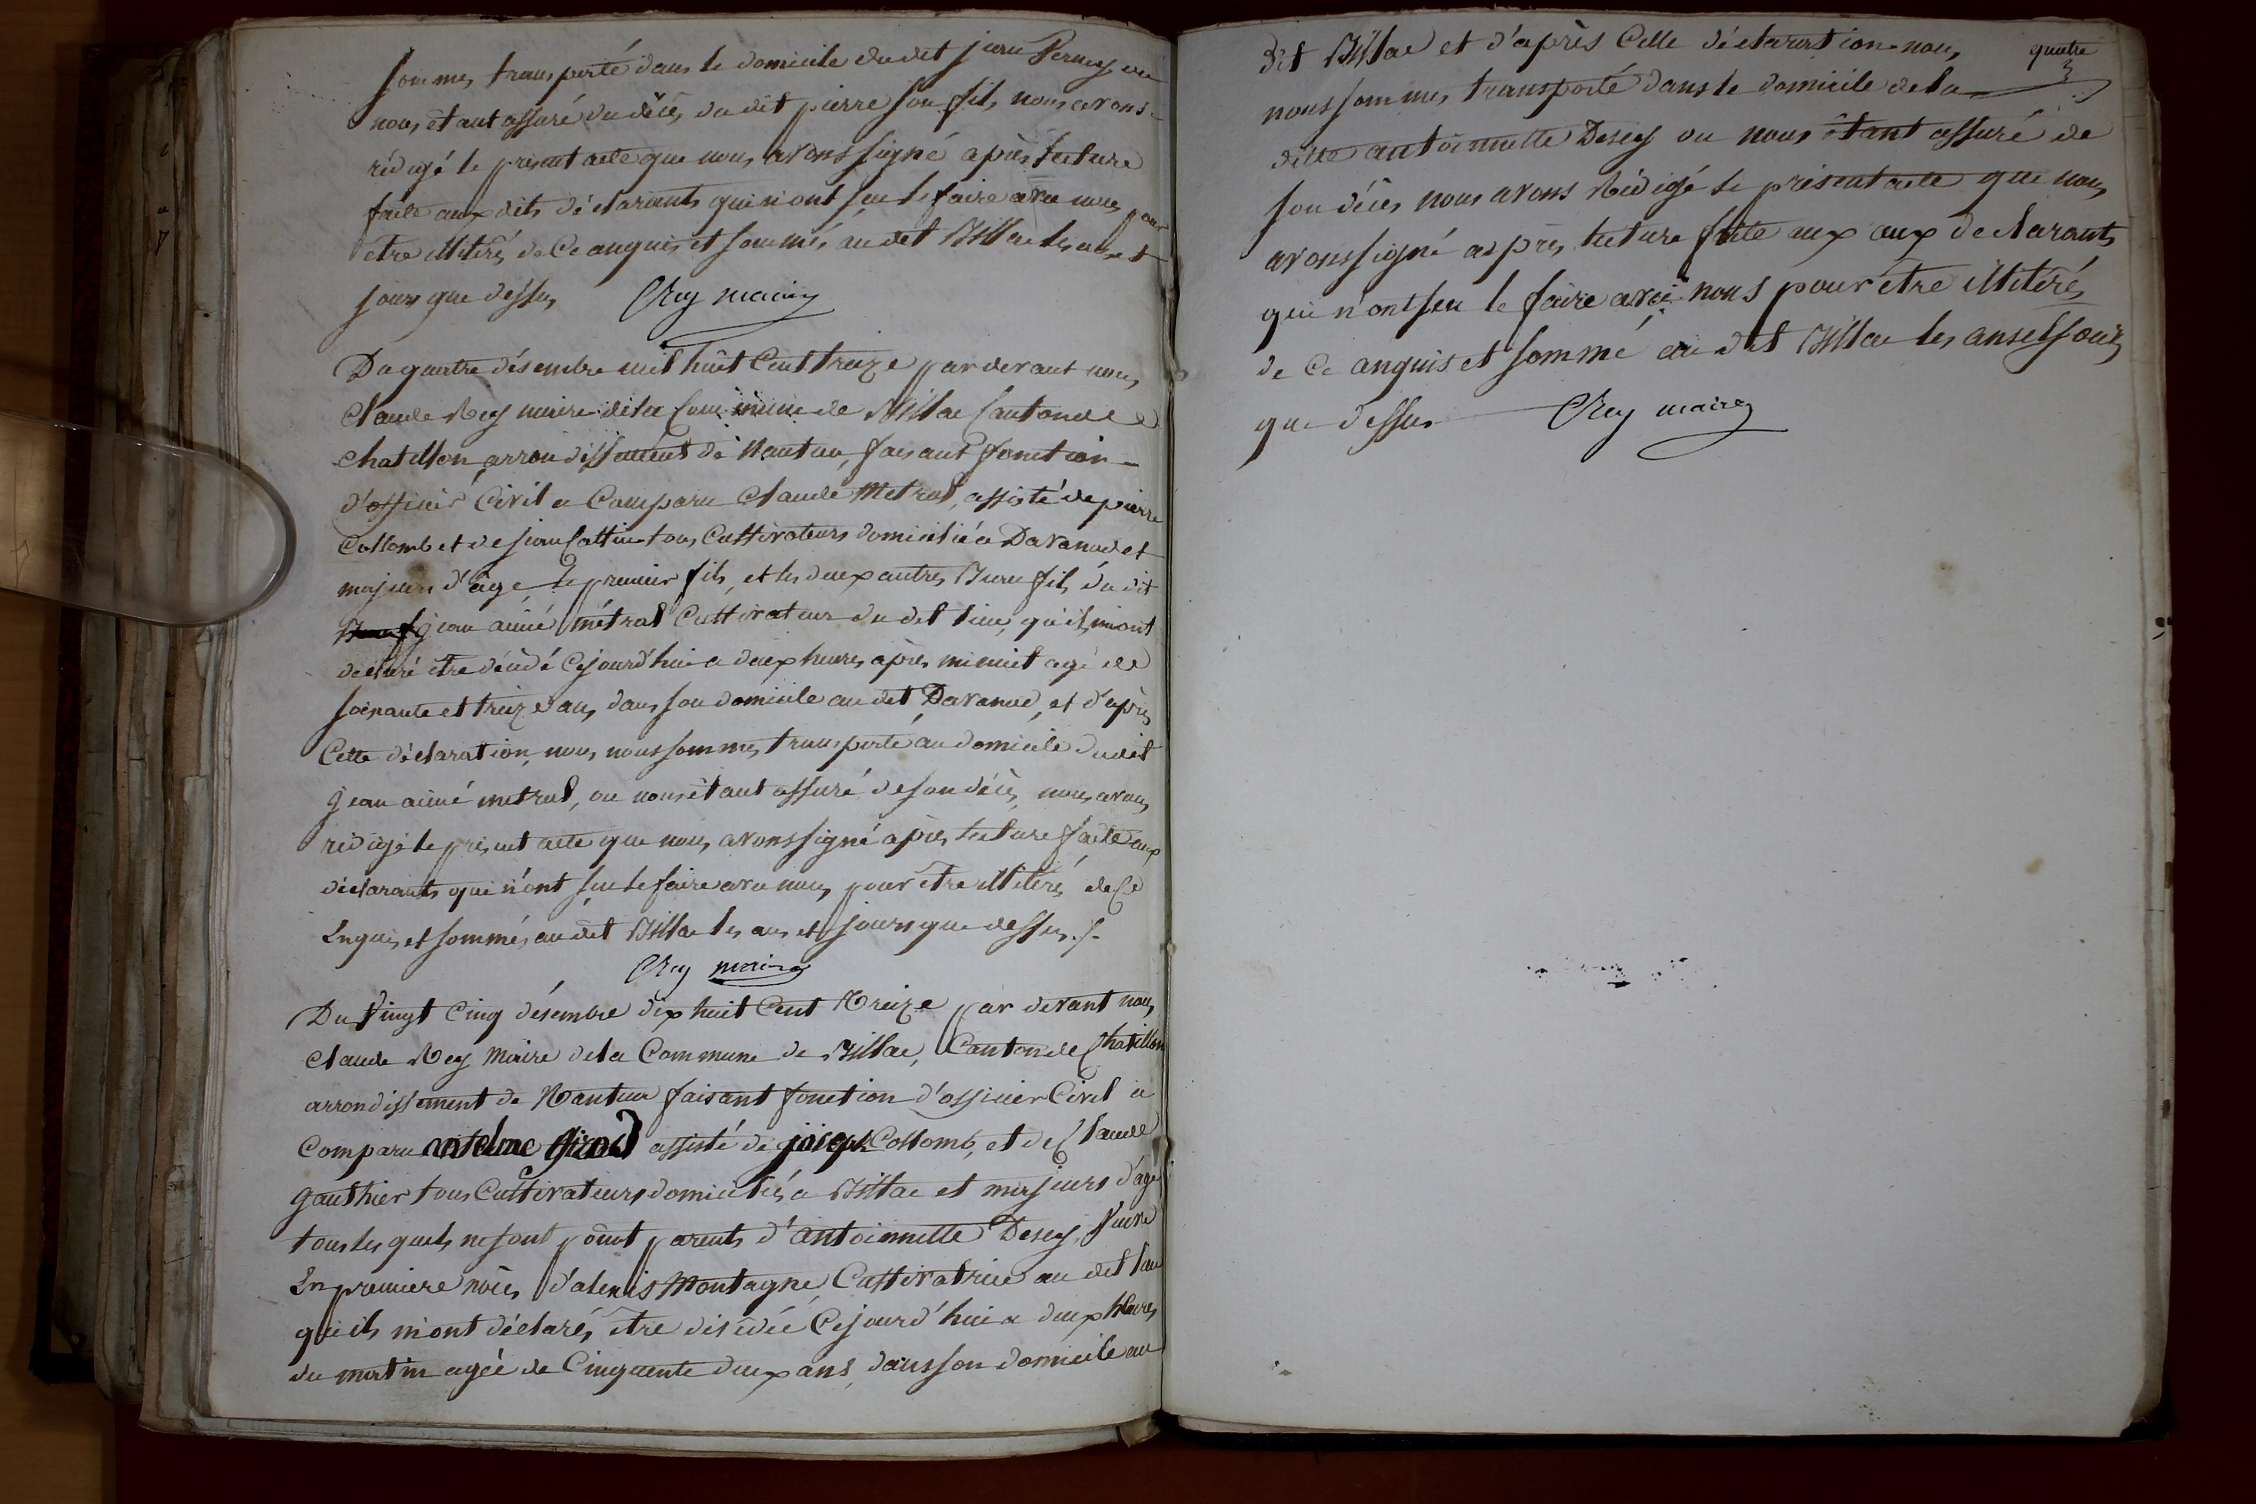 sommes transporté dans le domicile du dit jean Pernes ou
nous étant assuré du décès du dit pierre son fils nous avons
rédigé le présent acte que nous avons signé après lecture
faite aux dits déclarants qui n'ont seu le faire avec nous pour
être illitérés de ce anquis et sommés au dit Billiac les ans et
jours que dessus CRey maire
Du quatre désembre mil huit Cent treize par devant nous
Claude Rey maire de la Commune de Billiac Canton de
Chatillon arrondissement de Nantua, faisant fonction
d'officier Civil a Comparu Claude Metral, assisté de pierre
Collomb et de jean Cattin tous Cultivateurs domicilié a Davanod et
majeurs d'âge le premier fils, et les deux autres Beau fils du dit
jean aimé métral Cultivateur du dit lieu, qu'ils m'ont
declaré être décédé Cejourd'hui a deux heures après minuit agé de
soixante et treize ans, dans son domicile au dit Davanod, et d'après
Cette déclaration, nous nous sommes transporté au domicile du dit
jean aimé metral, ou nous étant assuré de son décès, nous avons
rédigé le présent acte que nous avons signé après lecture faite aux
déclarants qui n'ont seu le faire avec nous, pour être illitérés de Ce
Enquis et sommés au dit Billiac les ans et jours que dessus ./.
CRey maire
Du Vingt Cinq désembre dix huit Cent Treize par devant nous
Claude Rey Maire de la Commune de Billiac, Canton de Chatillon
arrondissement de Nantua faisant fonction d'officier Civil a
Comparu antelme Girod assisté de joseph Collomb, et de Claude
gauthier tous Cultivateurs domiciliés a Billiac et majeurs d'age
tous les quels ne sont point parents d'antoinnette Desey, Veuve
En premiere noces d'alexis Montagne, Cultivatrice au dit lieu
qu'ils m'ont déclarés être décédée Cejourd'hui a deux heures
du matin agée de Cinquante deux ans, dans son domicile au
quatre
dit Billiac et d'après Cette déclaration nous
nous sommes transporté dans le domicile de la
ditte antoinnette Desey ou nous étant assuré de
son décès nous avons Rédigé le présent acte que nous
avons signé après lecture faite aux aux declarants
qui n'ont seu le faire avec nous pour être illitérés
de Ce anquis et sommé au dit Billiac les ans et jours
que dessus CRey maire